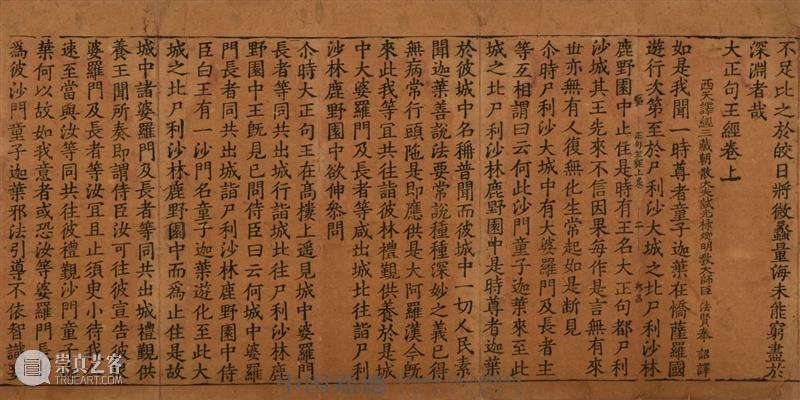 不足比之於皎日將微蠡量海未能窮盡於
深淵者哉
大正句王經卷上
西天譯經三藏朝散大夫試光祿卿明教大師臣 法賢奉 詔譯
如是我聞一時尊者童子迦葉在憍薩羅國
遊行次第至於尸利沙大城之北尸利沙林
正句王經上卷 二
鹿野園中止住是時有王名大正句都尸利
沙城其王先來不信因果每作是言無有來
世亦無有人復無化生常起如是斷見
尒時尸利沙大城中有大婆羅門及長者主
等互相謂曰云何此沙門童子迦葉來至此
城之北尸利沙林鹿野園中是時尊者迦葉
於彼城中名稱普聞而彼城中一切人民素
聞迦葉善說法要常說種種深妙之義已得
無病常行頭陁是即應供是大阿羅漢今旣
來此我等宜共往詣彼林禮觀供養於是城
中大婆羅門及長者等咸出城北往詣尸利
沙林鹿野園中欲伸叅問
尒時大正句王在高樓上遥見城中婆羅門
長者等同共出城行詣城北往尸利沙林鹿
野園中王旣見已問侍臣曰云何城中婆羅
門長者同共出城詣尸利沙林鹿野園中侍
臣白王有一沙門名童子迦葉遊化至此大
城之北尸利沙林鹿野園中而爲止住是故
城中諸婆羅門及長者等同共出城禮觀供
養王聞所奏即謂侍臣汝可往彼宣告
婆羅門及長者等汝宜且止須臾小待我
速至當與汝等同共往彼禮觀沙門童子
葉何以故如我意者或恐汝等婆羅門長
爲彼沙門童子迦葉邪法引導不依智識妄
崇真艺客
WWW.TRUEART.COM